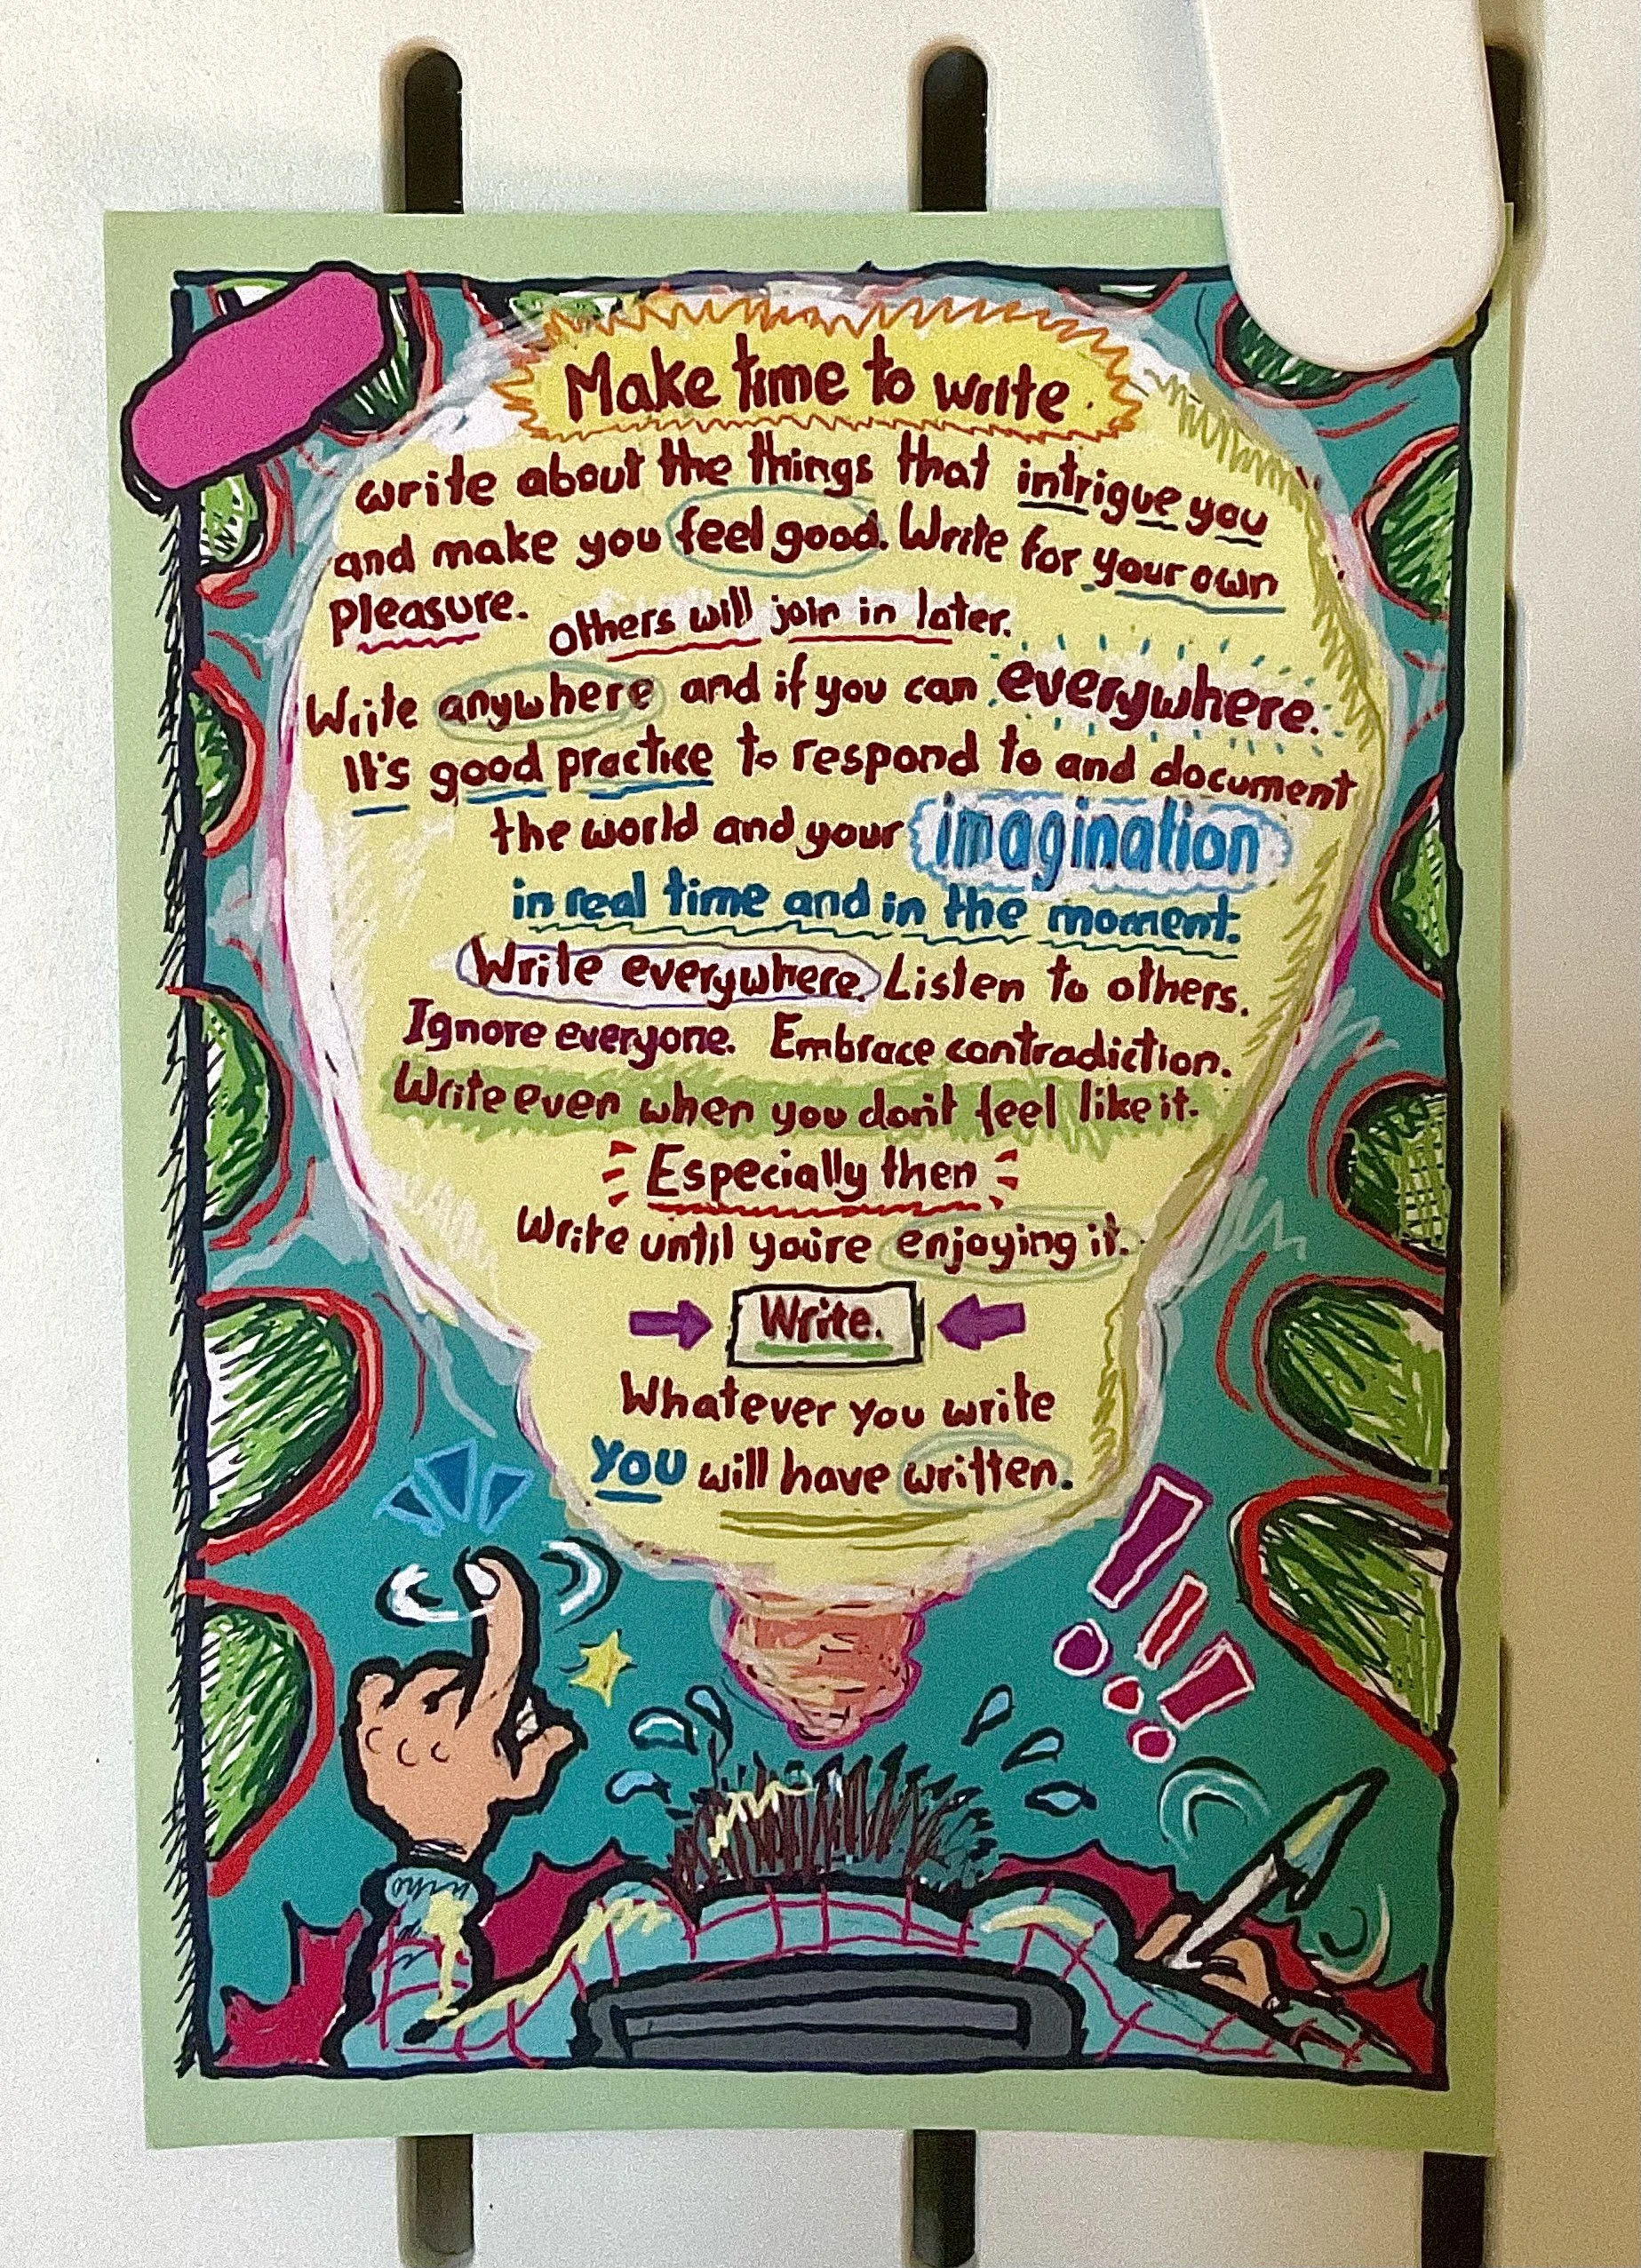 Make time to write
write about the things that intrigue you
and make you feel good. Write for your own
pleasure. others will join in later.
Write anywhere and if you can everywhere.
It's good practice to respond to and document
the world and your imagination
in real time and in the moment.
Write everywhere. Listen to others.
Ignore everyone. Embrace contradiction.
Write even when you don't feel like it.
Especially then
Write until you're enjoying it.
Write.
Whatever you write
you will have written.
!!!